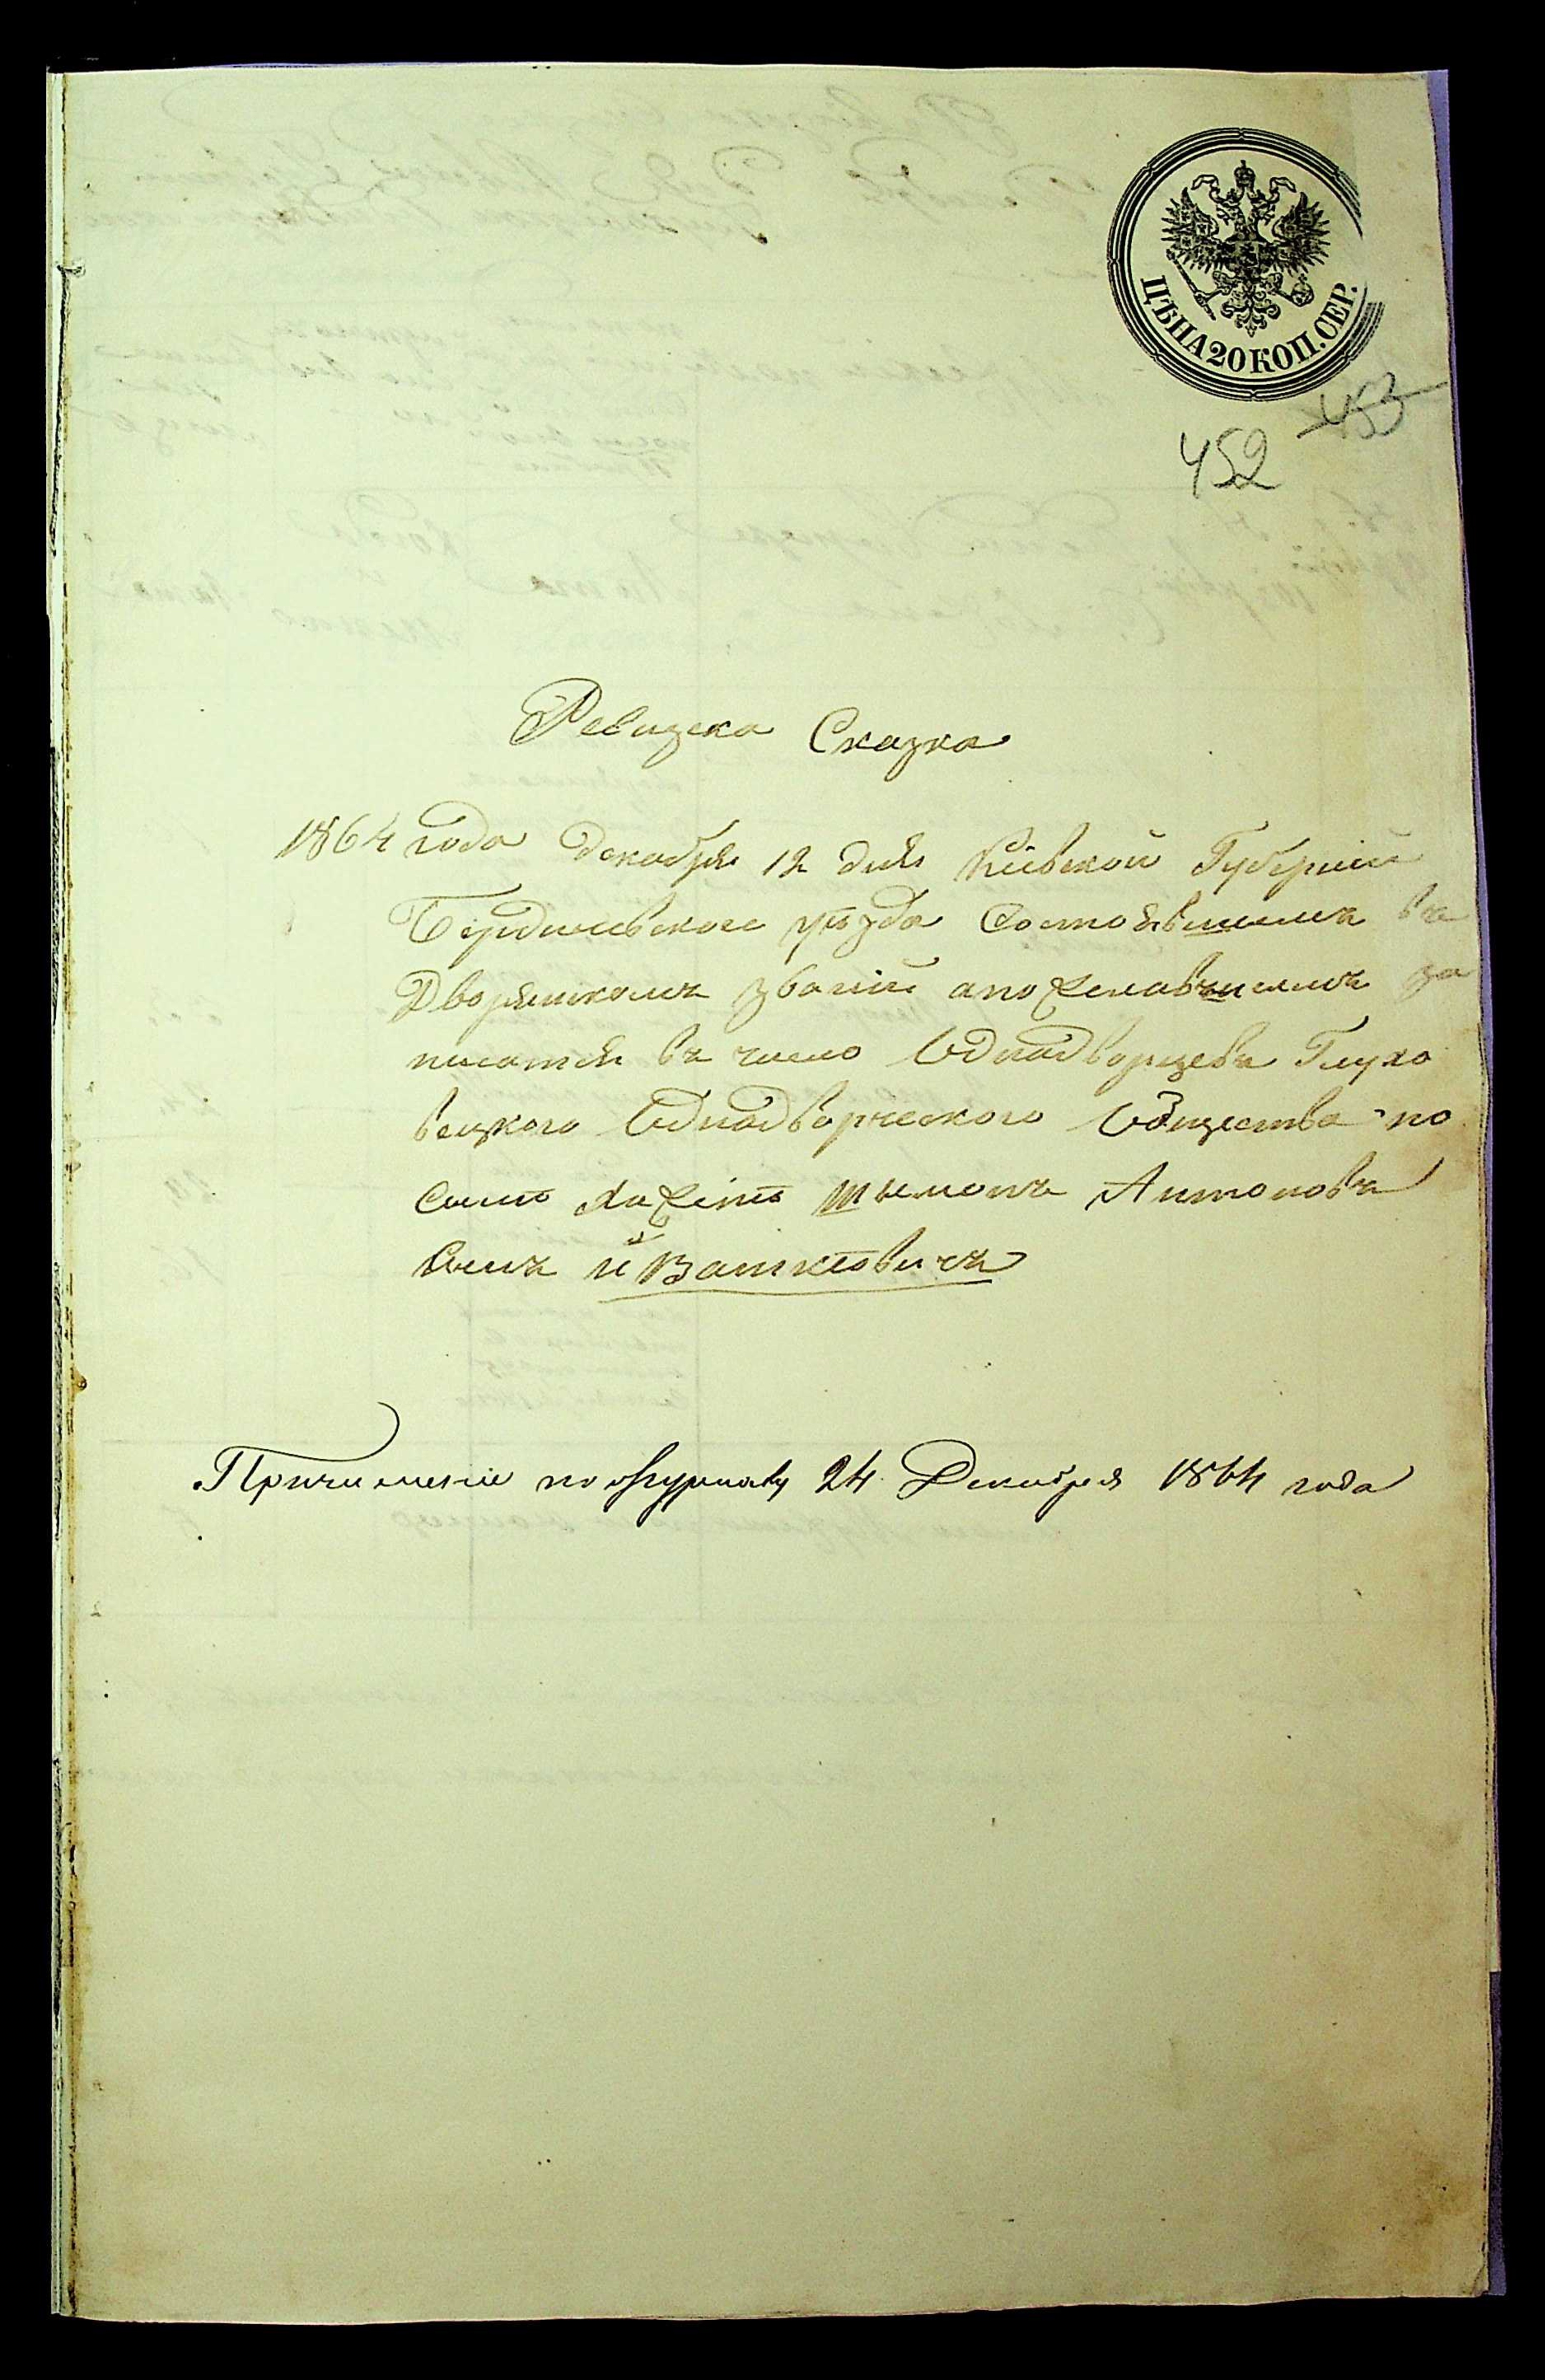 ЦѢНА 20 КОП. СЕР.
453
452
Ревизска Сказка
1864 года декабря 12 дня Кіевской Губерніи
Бердичевского уѣзда Состоявшимъ въ
Дворянскомъ званіи апожелавшимъ за
писатся въ число Однодворцевъ Глухо
вецкого Однодворческого Общества по
Антоновъ
Сынъ Ивашкевичъ
Причисленіе по журналу 24 Декабря 1864 года